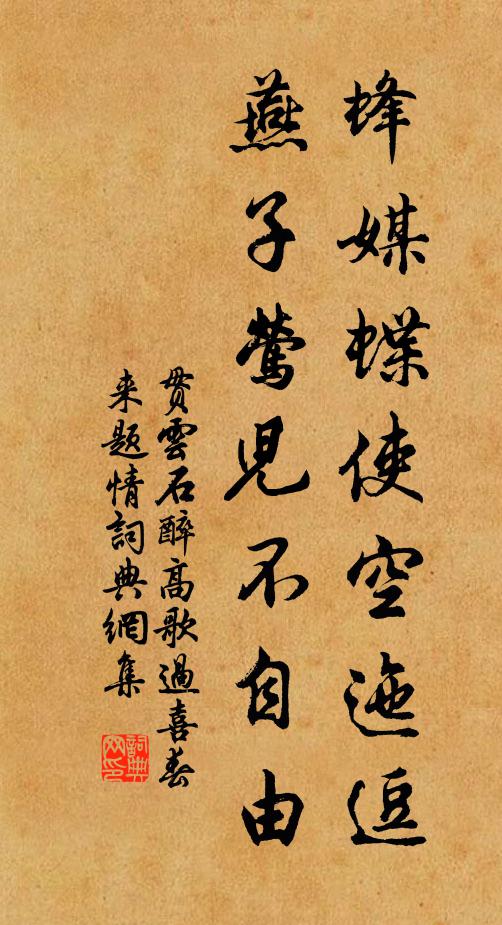 蜂媒蝶使空迤逗
燕子鶯児不自由
貫雲石醉高歌過喜春
来题情詞典網集
詞典
网印